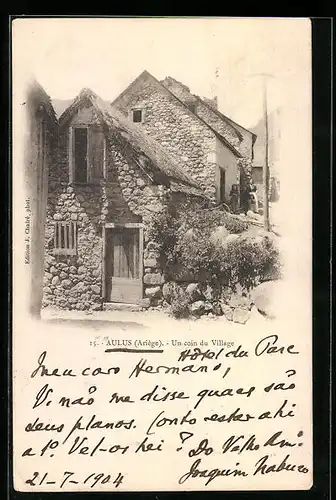 Edition J. Cladré, phot.
15 - AULUS (Ariège). - Un coin du Village
Hôtel du Parc
Meu caro Hermano,
V. não me disse quaes são
seus planos. Conto estar ahi
a 1º. Vel-os hei? Do Velho Amº.
Joaquim Nabuco
21-7-1904